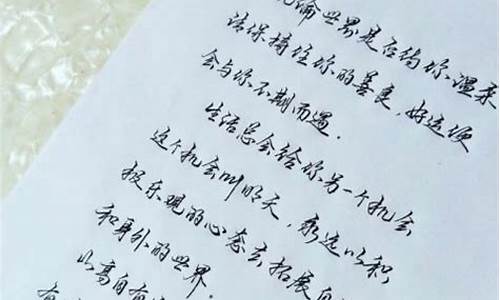 无论世界是否给你温柔
请保持住你的善良,好运便
会与你不期而遇.
生活总会给你另一个机会
这个机会叫明天,永远以积
极乐观的心态去拓展自
和身外的世界.
此高自有
有